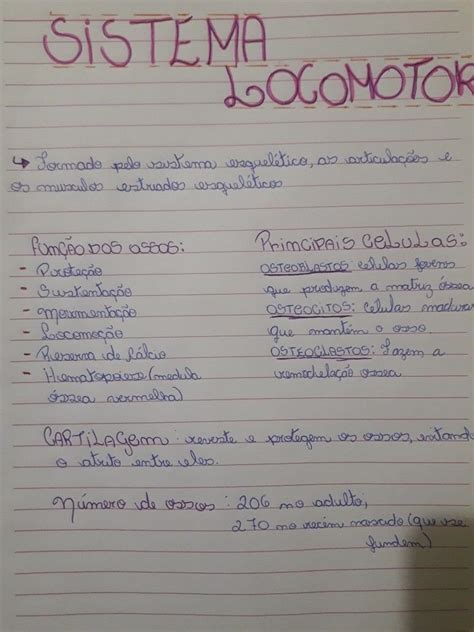 SISTEMA
LOCOMOTOR
↳ Formado pelo sistema esquelético, as articulações e
os musculos estriados esqueléticos
FUNÇÃO DOS OSSOS:
- Proteção
- Sustentação
- Movimentação
- Locomoção
- Reserva de Cálcio
- Hematopoiese (medula
óssea vermelha)
PRINCIPAIS CELULAS:
OSTEOBLASTOS: celulas jovens
que produzem a matriz óssea
OSTEOCITOS: celulas maduras
que mantém o osso.
OSTEOCLASTOS: Fazem a
remodelação óssea
CARTILAGEM: reveste e protegem os ossos, evitando
o atrito entre eles.
Número de ossos: 206 no adulto,
270 no recém nascido (que se
fundem)